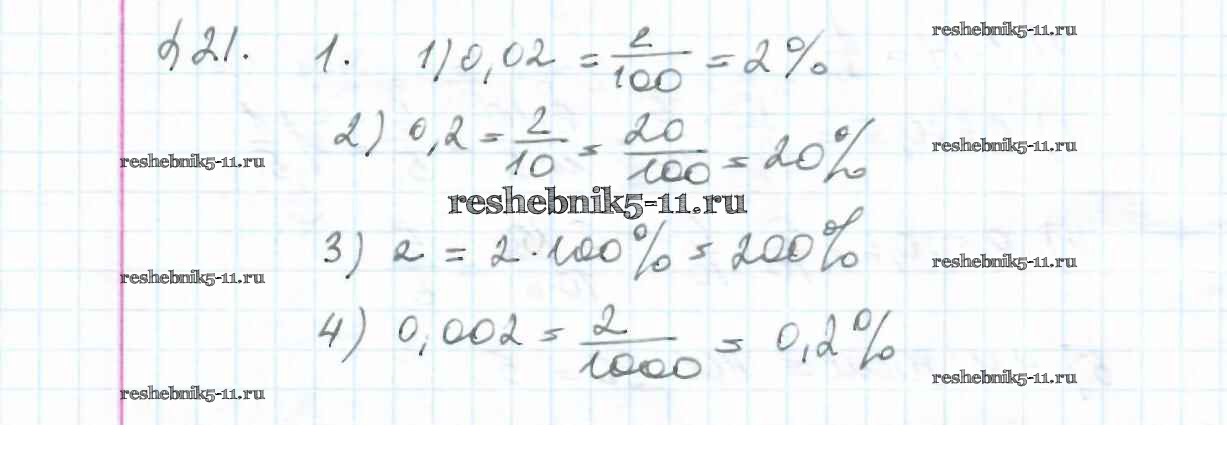 § 21. 1. 1) 0,02 = 2/100 = 2%
reshebnik5-11.ru
2) 0,2 = 2/10 = 20/100 = 20%
reshebnik5-11.ru
reshebnik5-11.ru
reshebnik5-11.ru
3) 2 = 2·100% = 200%
reshebnik5-11.ru
reshebnik5-11.ru
4) 0,002 = 2/1000 = 0,2%
reshebnik5-11.ru
reshebnik5-11.ru